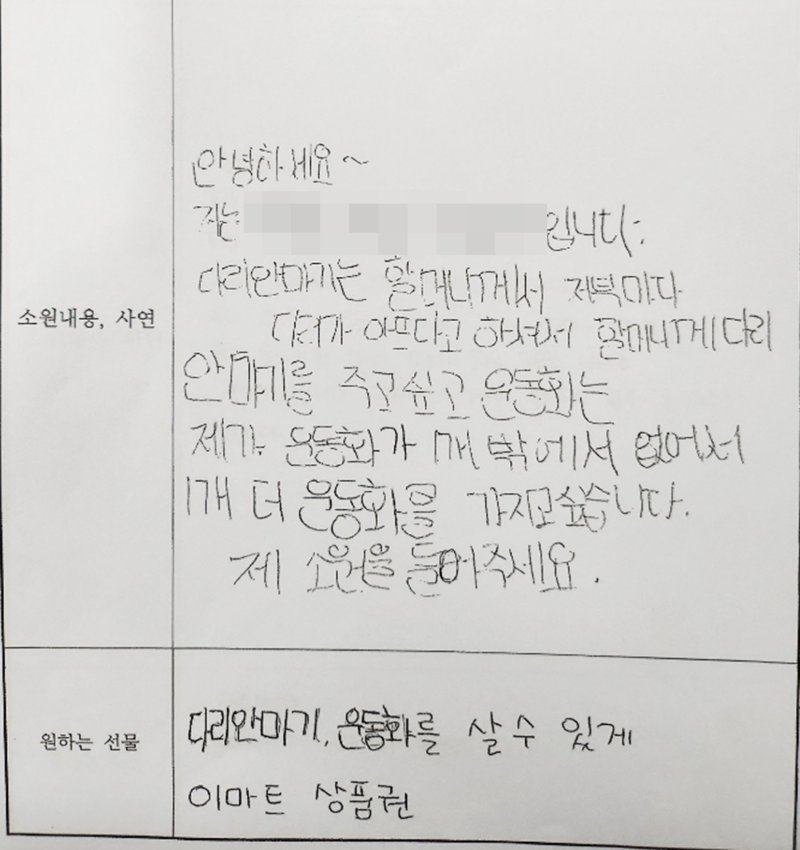 소원내용, 사연
안녕하세요~
저는 입니다.
다리안마기는 할머니께서 저녁마다
다리가 아프다고 하셔서 할머니께 다리
안마기를 주고싶고 운동화는
제가 운동화가 1개 밖에서 없어서
1개 더 운동화를 가지고싶습니다.
제 소원을 들어주세요.
원하는 선물
다리안마기, 운동화를 살 수 있게
이마트 상품권